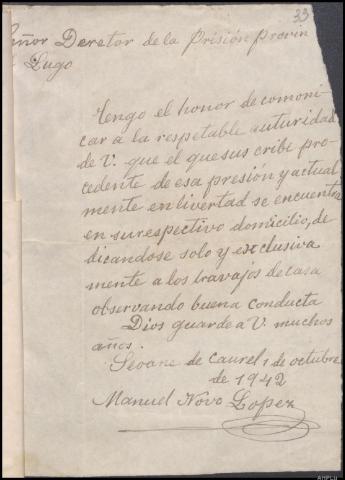 33
eñor Deretor de la Prisión Provin
Lugo
Tengo el honor de comoni
car a la respetable auturidad
de V. que el quesus cribe pro-
cedente de esa presión y actual
mente en livertad se encuentra
en su respectivo domicilio, de
dicandose solo y exclusiva
mente a los travajos de casa
observando buena conducta
Dios guarde a V. muchos
años.
Seoane de Caurel 1 de octubre
de 1942
Manuel Novo Lopez
AHPLU